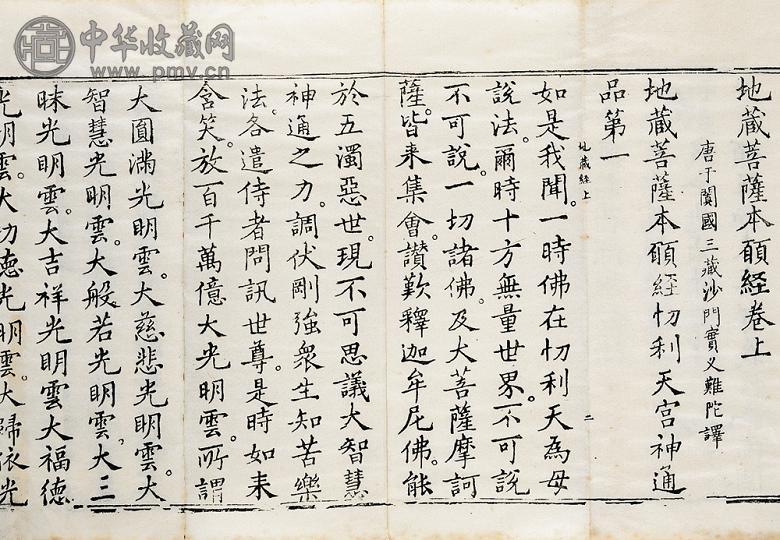 中华收藏网
www.pmv.cn
地蔵菩薩本願経卷上
唐于闐國三藏沙門實叉難陀譯
地蔵菩薩本願経忉利天宫神通
品第一
地蔵経上
二
如是我聞。一時佛在忉利天為母
說法。爾時十方無量世界。不可說
不可說。一切諸佛。及大菩薩摩訶
薩。皆来集會。讃歎釋迦牟尼佛。能
於五濁惡世。現不可思議大智慧
神通之力。調伏剛強衆生知苦樂
法。各遣侍者問訊世尊。是時如来
含笑。放百千萬億大光明雲。所謂
大圓滿光明雲。大慈悲光明雲。大
智慧光明雲。大般若光明雲。大三
昧光明雲。大吉祥光明雲大福德
光明雲。大功德光明雲。大歸依光